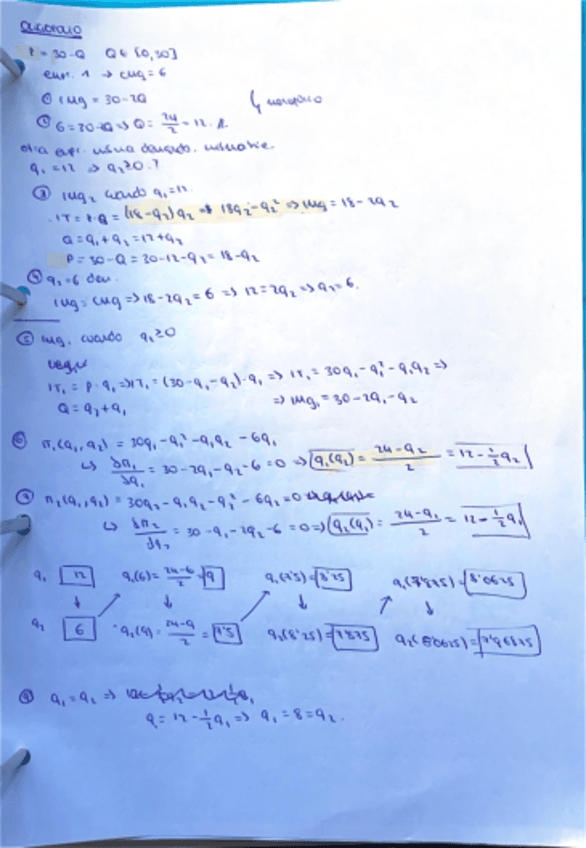 P = 30-Q Q ∈ [0,30]
empr. 1 → cmg = 6
① img = 30-2Q
② 6 = 30-2Q => Q = 24/2 = 12.
q₁ = 12 => q₂ ≥ 0 ?
③ img₂ cuando q₁ = 12.
IT = P·Q = (18-q₂)q₂ => 18q₂-q₂² => img = 18-2q₂
Q = q₁+q₂ = 12+q₂
P = 30-Q = 30-12-q₂ = 18-q₂
④ q₂ = 6
img = cmg => 18-2q₂ = 6 => 12 = 2q₂ => q₂ = 6.
⑤ img, cuando q₂ ≥ 0
IT₁ = P·q₁ => IT₁ = (30-q₁-q₂)·q₁ => IT₁ = 30q₁-q₁²-q₁q₂ =>
Q = q₂+q₁ => img₁ = 30-2q₁-q₂
⑥ π₁(q₁,q₂) = 30q₁-q₁²-q₁q₂-6q₁
↳ ∂π₁/∂q₁ = 30-2q₁-q₂-6 = 0 => q₁(q₂) = (24-q₂)/2 = 12-½q₂
⑦ π₂(q₁,q₂) = 30q₂-q₁q₂-q₂²-6q₂ = 0
↳ ∂π₂/∂q₂ = 30-q₁-2q₂-6 = 0 => q₂(q₁) = (24-q₁)/2 = 12-½q₁
q₁ 12 q₁(6) = (24-6)/2 = 9 q₁(7'5) = 8'25 q₁(7'875) = 8'0625
q₂ 6 q₂(9) = (24-9)/2 = 7'5 q₂(8'25) = 7'875 q₂(8'0625) = 7'96875
⑧ q₁ = q₂ =>
q = 12-½q₁ => q₁ = 8 = q₂.